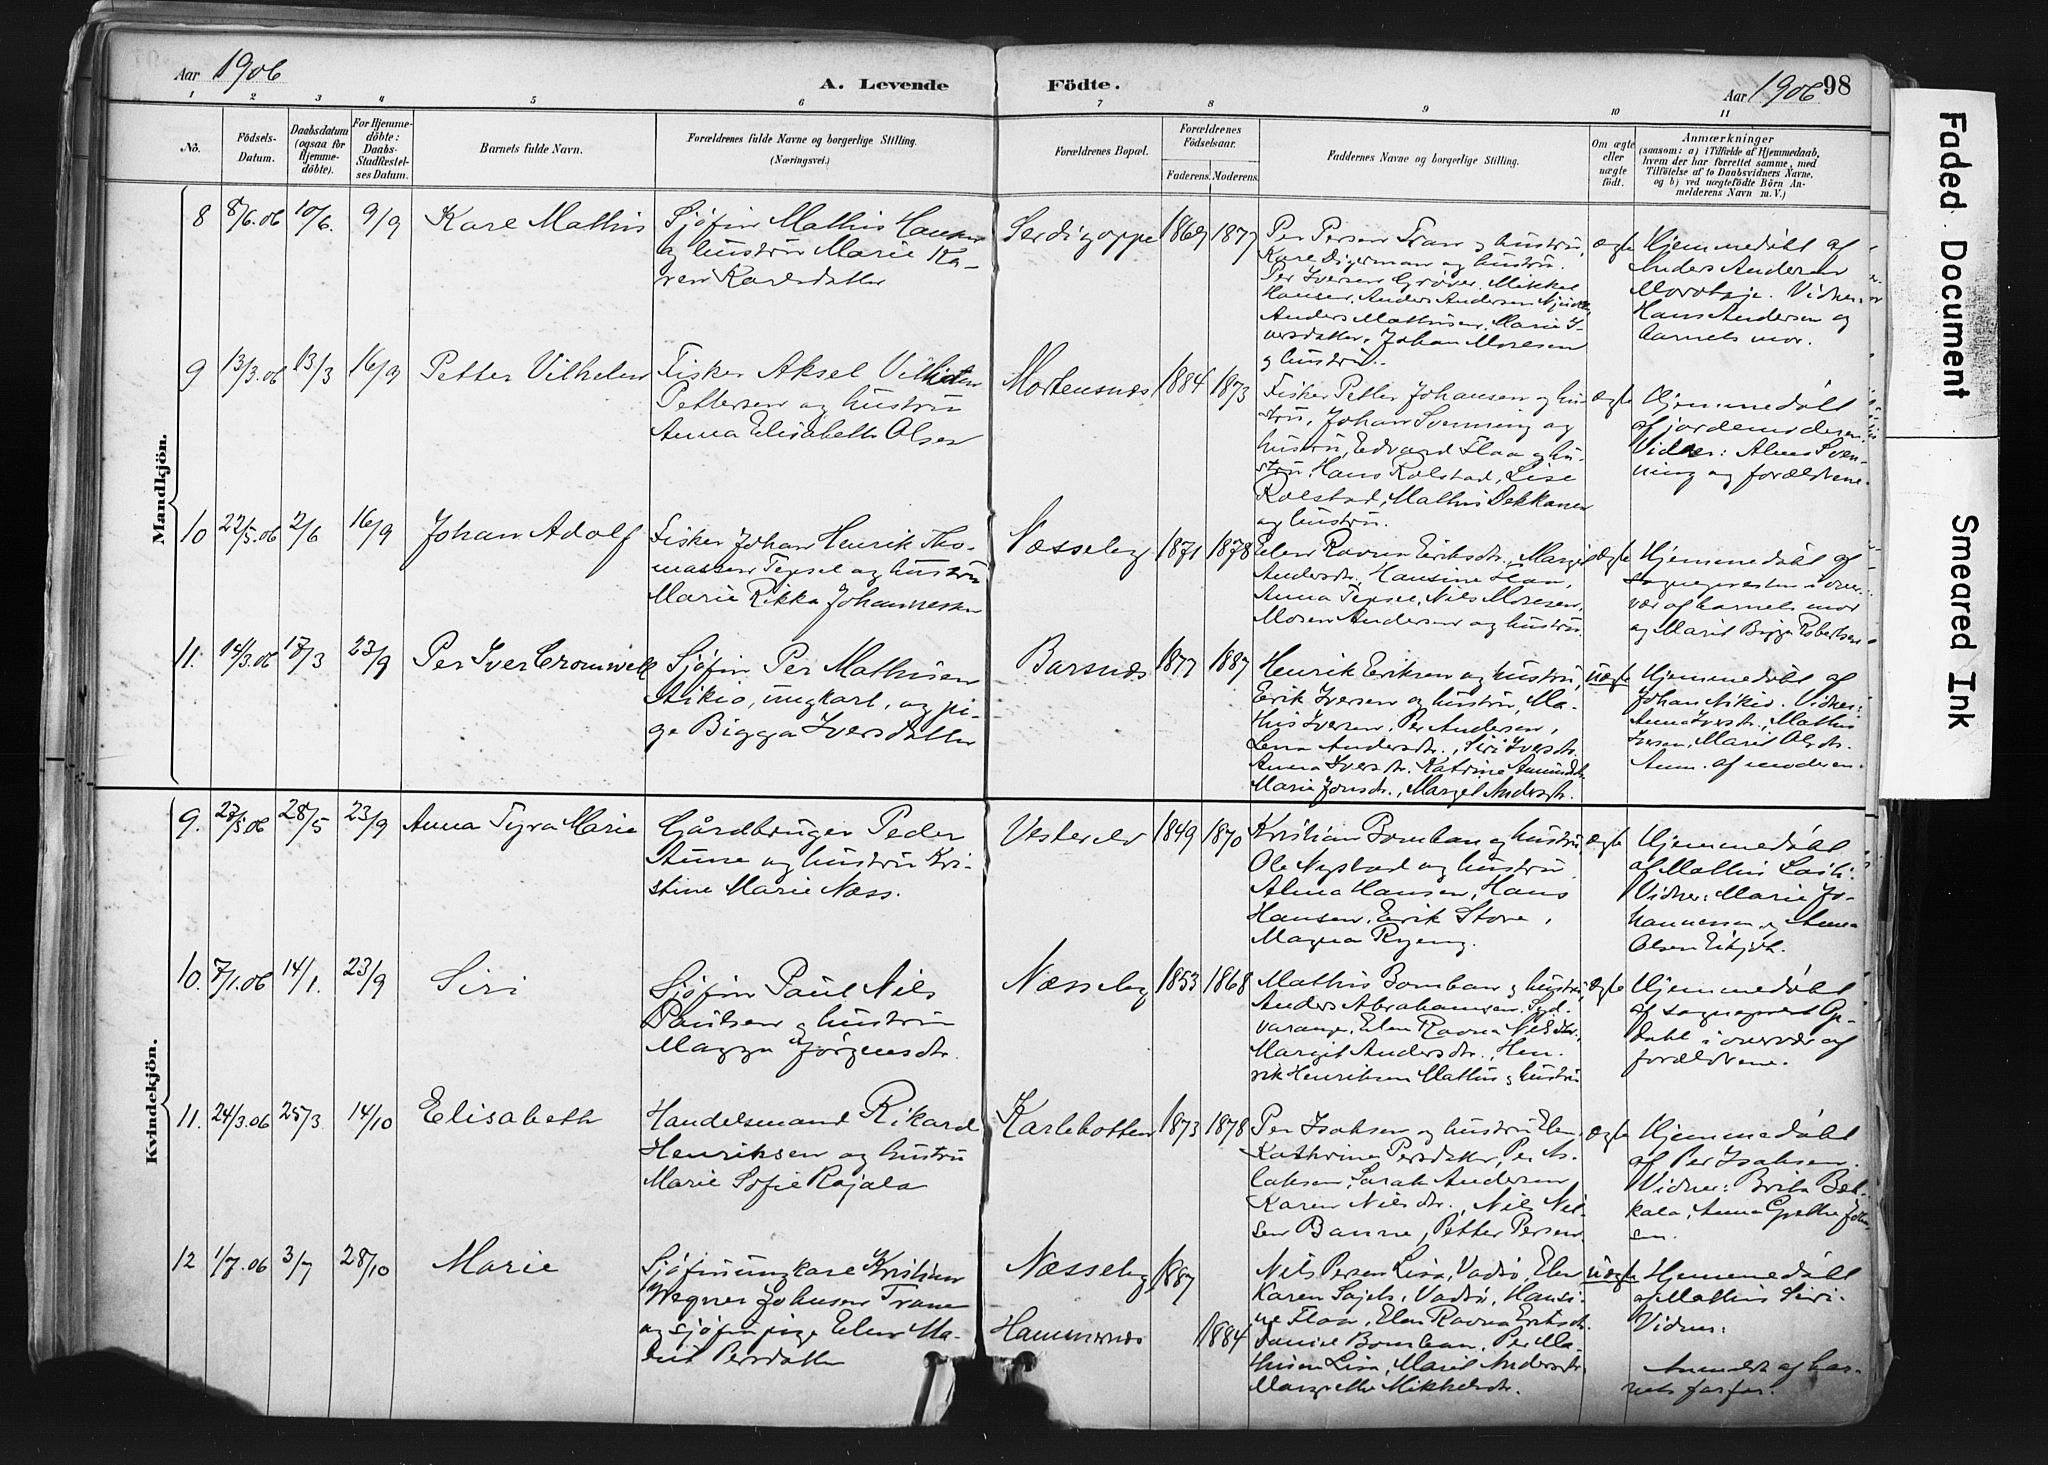 Aar 1906
A. Levende Födte.
Aar 1906 98
1 2 3 4 5 6 7 8 9 10 11
Nô.
Födsels-Datum.
Daabsdatum (ogsaa for Hjemme-döbte).
For Hjemme-döbte: Daabs-Stadfæstel-ses Datum.
Barnets fulde Navn.
Forældrenes fulde Navne og borgerlige Stilling. (Næringsvei.)
Forældrenes Bopæl.
Forældrenes Födselsaar.
Faderens. Moderens.
Faddernes Navne og borgerlige Stilling.
Om ægte eller uægte födt.
Anmærkninger
(saasom: a) i Tilfælde af Hjemmedaab, hvem der har forrettet samme, med Tilföielse af to Daabsvidners Navne. og b) ved uægtefödte Börn An-melderens Navn m. V.)
Mandkjön.
8 8/6.06 10/6. 9/9 Karl Mathis
Sjøfin Mathis Hansen
og hustru Marie Ka-
ren Karlsdatter
1869 1877
Per Persen Tran og hustru,
Kare Digerman og hustru.
Per Iversen Grøver, Mikkel
Hansen, Anders Andersen
Anders Mathisen, Marie I-
versdatter, Johan Mosesen
og hustru.
ægte
Hjemmedøbt af
Anders Andersen
Vidner:
Hans Andersen og
barnets mor.
9 13/3.06 13/3 16/9 Petter Vilhelm
Fisker Aksel Vilhelm
Pettersen og hustru
Anna Elisabeth Olsen
Mortensnæs 1884 1873
Fisker Petter Johansen og hu-
stru, Johan Svenning og
hustru, Edvard Flaa og hu-
stru, Hans Rolstad, Lise
Rolstad, Mathis Dekkanen
og hustru.
ægte
Hjemmedøbt
af jordemoderen.
Vidner: Alma Sven-
ning og forældrene.
10 22/5.06 2/6 16/9 Johan Adolf
Fisker Johan Henrik Tho-
massen Tepsel og hustru
Marie Rikka Johannesen
Næsseby 1871 1878
Elen Ravna Eriksdtr., Margit
Andersdtr., Hansine Flaa,
Anna Tepsel, Nils Mosesen,
Mosen Andersen og hustru.
ægte
Hjemmedøbt af
sognepresten i over-
vær af barnets mor
og Marit Bigga Robertsen
11. 14/3.06 17/3 23/9 Per Iver Cromwell
Sjøfin Per Mathisen
Aikio, ungkarl, og pi-
ge Bigga Iversdatter
Barsnæs 1877 1887
Henrik Eriksen og hustru,
Erik Iversen og hustru, Ma-
this Iversen, Per Andersen,
Lena Andersdtr., Siri Iversdtr.
Anna Iversdtr. Katrine Amundsdtr.
Marie Jonsdtr., Margit Andersdtr.
uægte
Hjemmedøbt af
Johan Aikio. Vidner:
Anna Iversdtr., Mathis
Iversen, Marit Olsdtr.
Anm. af moderen.
Kvindekjön.
9. 27/5.06 28/5 23/9 Anna Tyra Marie
Gårdbruger Peder
Aune og hustru Kri-
stine Marie Næss.
Vesterelv 1849 1870
Kristian Bomban og hustru,
Ole Nystad og hustru
Alma Hansen, Hans
Hansen, Erik Store,
Magna Ryeng.
ægte
Hjemmedøbt
af Mathis Lasti.
Vidner: Marie Jo-
hannessen og Anna
Olsen
10. 7/1.06 14/1. 23/9 Siri
Sjøfin Paul Nils
Paulsen og hustru
Magga Jørgensdtr.
Næsseby 1853 1868
Mathis Bomban og hustru,
Anders Abrahamsen, Syd-
varanger, Elen Ravna Nilsdtr.,
Margit Andersdtr., Hen-
rik Henriksen Mathis og hustru
ægte
Hjemmedøbt
af sogneprest Op-
dahl i overvær af
forældrene.
11. 24/3.06 25/3 14/10 Elisabeth
Handelsmand Rikard
Henriksen og hustru
Marie Sofie Rajala
Karlebotten 1873 1878
Per Isaksen og hustru Elen
Kathrine Persdatter, Per As-
laksen, Sarah Andersen,
Karen Nilsdtr., Nils Nil-
sen Banne, Petter Persen
ægte
Hjemmedøbt
af Per Isaksen.
Vidner: Brita
Anna Grethe Johan-
sen.
12 1/7.06 3/7 28/10 Marie
Sjøfinungkarl Kristian
Wegner Johnsen Trane
og sjøfinpige Elen Ma-
rit Persdatter
Næsseby, 1887
Hammernæs 1884
Nils Persen Lisa, Vadsø, Elen
Karen Sajets, Vadsø, Hansi-
ne Flaa, Elen Ravna Eriksdtr.
Daniel Bomban, Per Ma-
thisen Lisa, Marit Andersdtr.
Margrethe Mikkelsdtr.
uægte
Hjemmedøbt
af Mathis Siri.
Vidner:
Anmeldt af bar-
nets farfar.
Faded Document
Smeared Ink